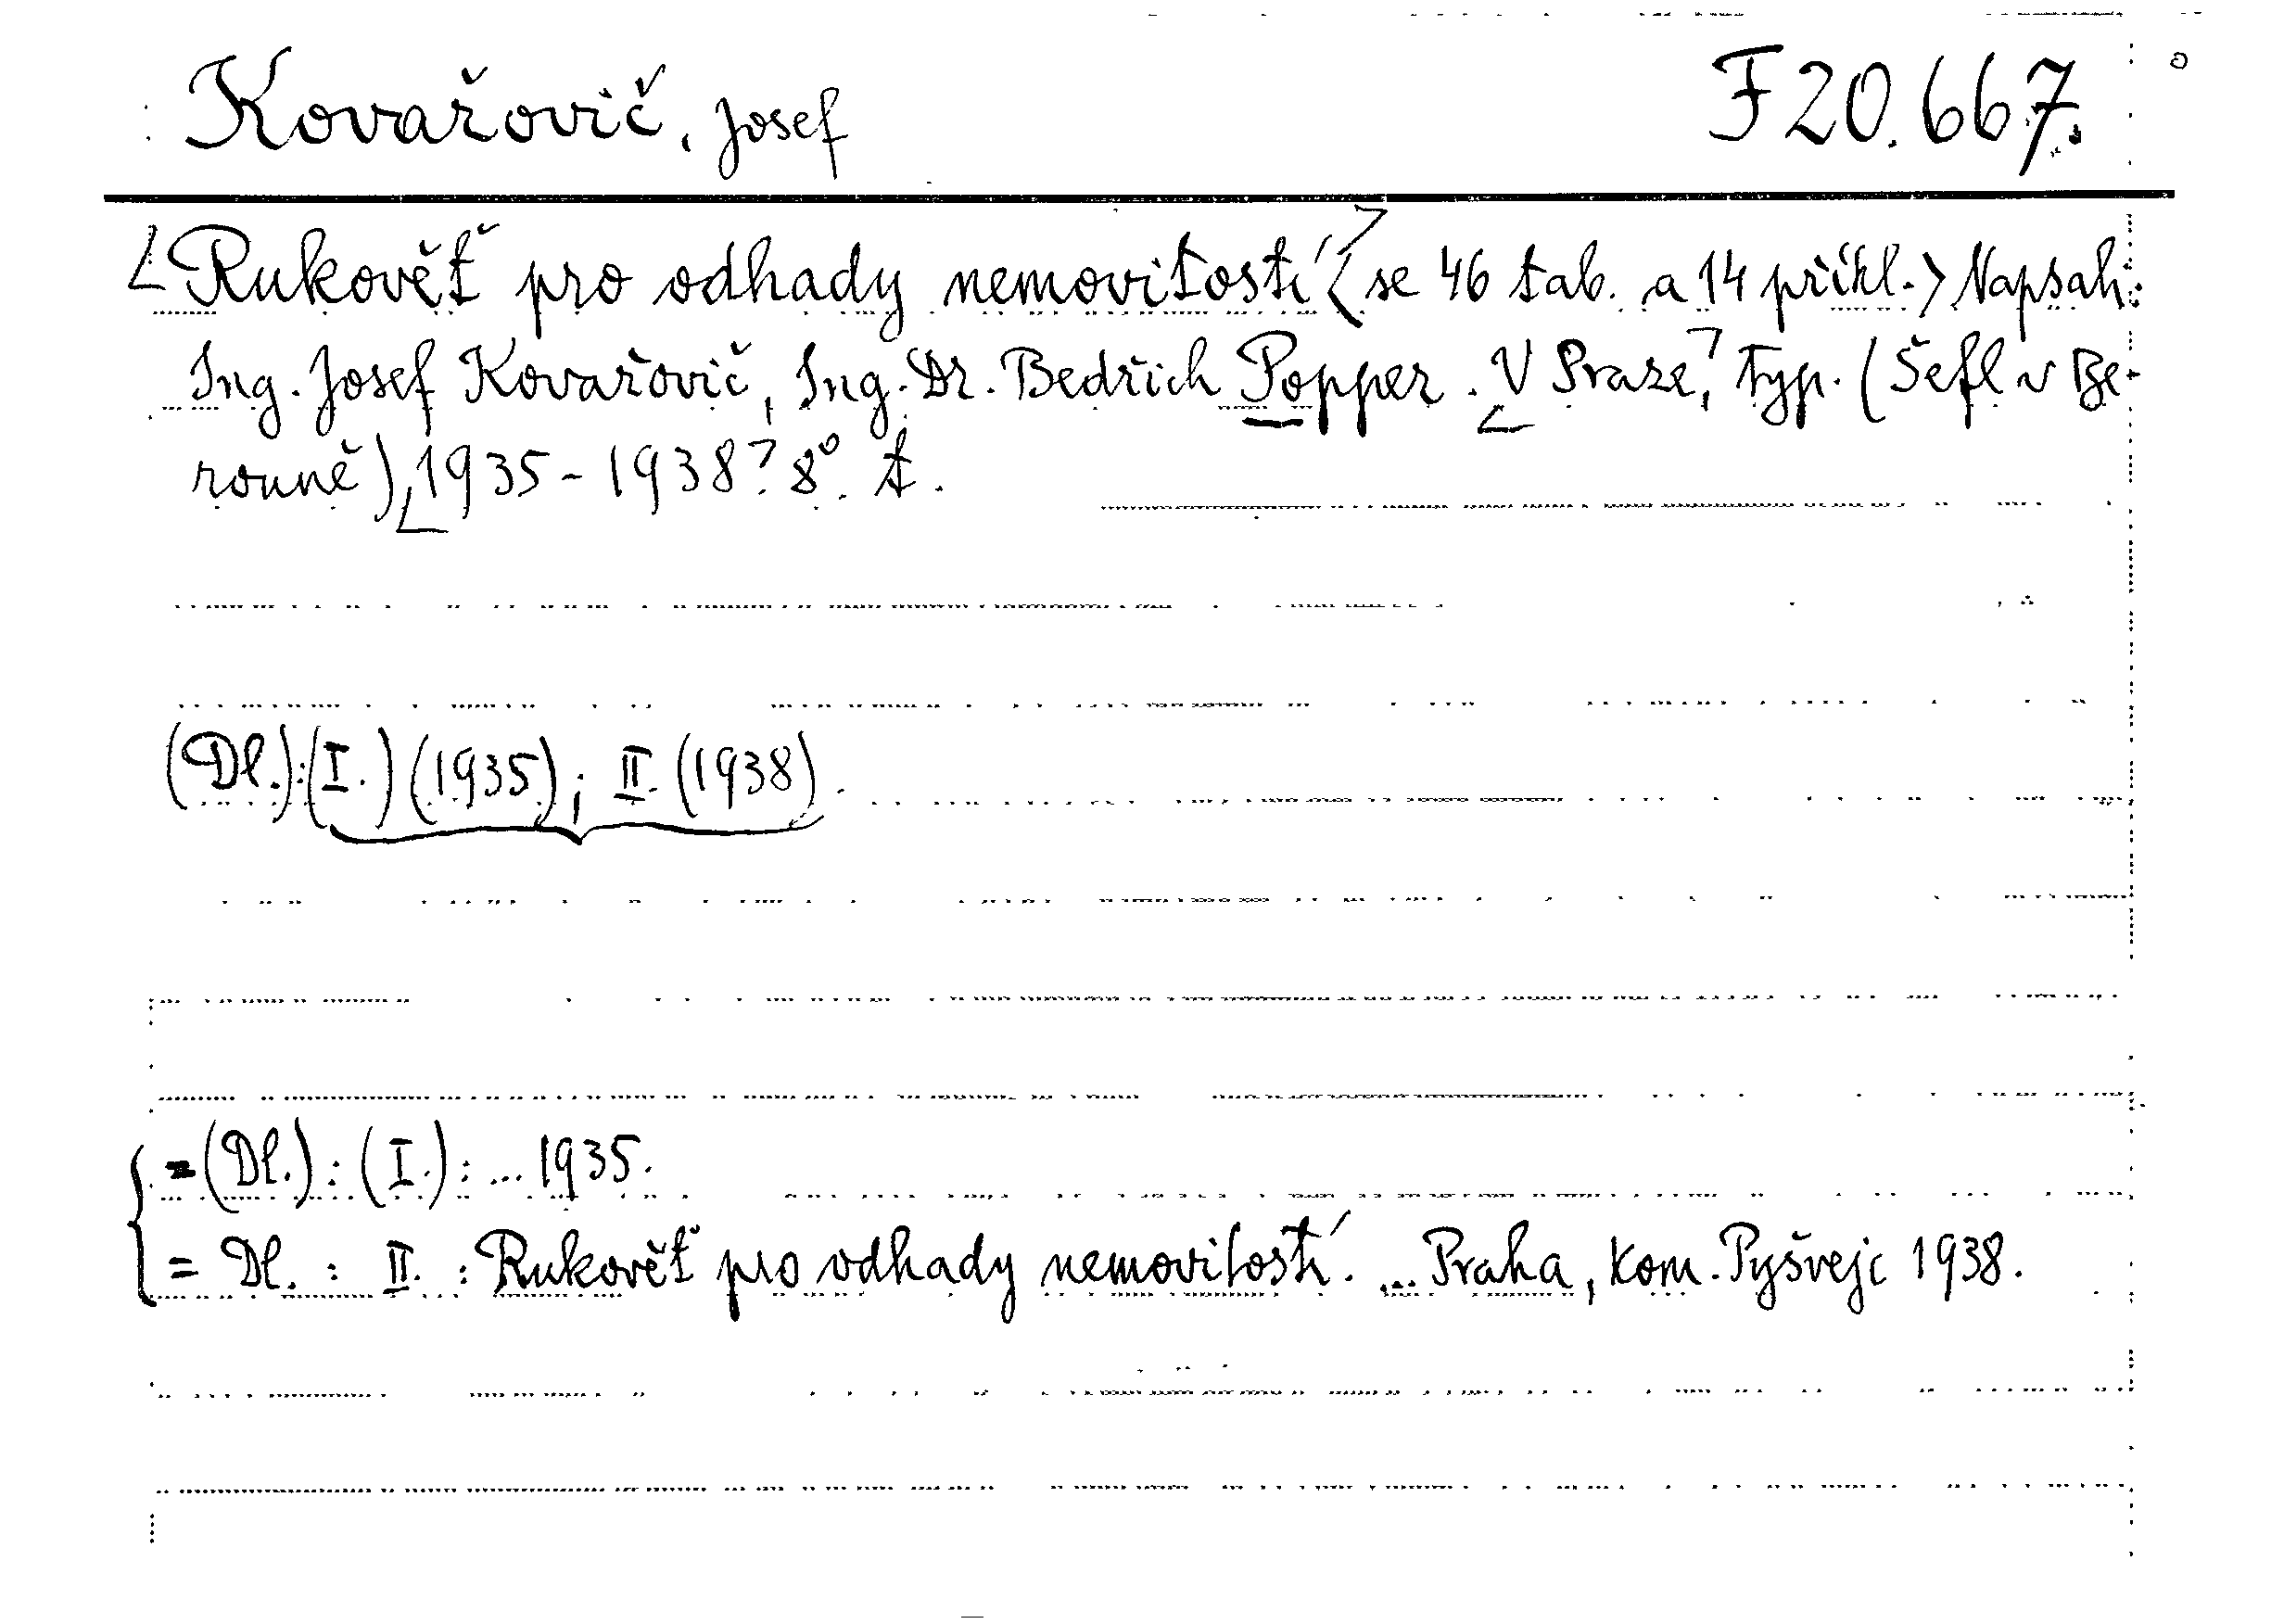 Kovařovič, Josef F 20.667.
Rukověť pro odhady nemovitostí <se 46 tab. a 14 příkl.> Napsali:
Ing. Josef Kovařovič, Ing. Dr. Bedřich Popper. V Praze, Typ. (Šefl v Be-
rouně), 1935-1938. 8°. t.
(Dl.):(I.) (1935); II. (1938).
=(Dl.): (I.): ... 1935.
= Dl. : II. : Rukověť pro odhady nemovitostí. ... Praha, kom. Pyšvejc 1938.